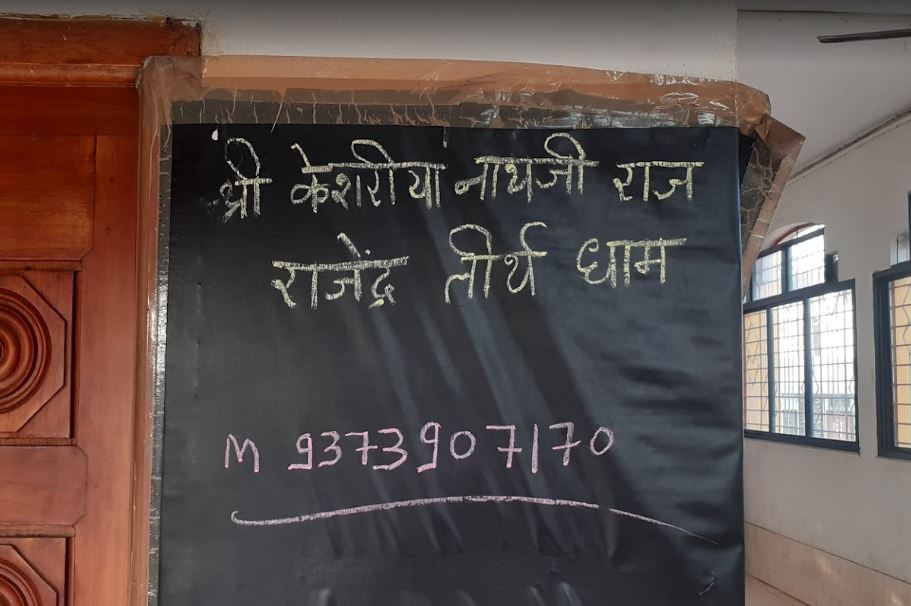 श्री केशरीया नाथजी राज
राजेंद्र तीर्थ धाम
M 9373907170